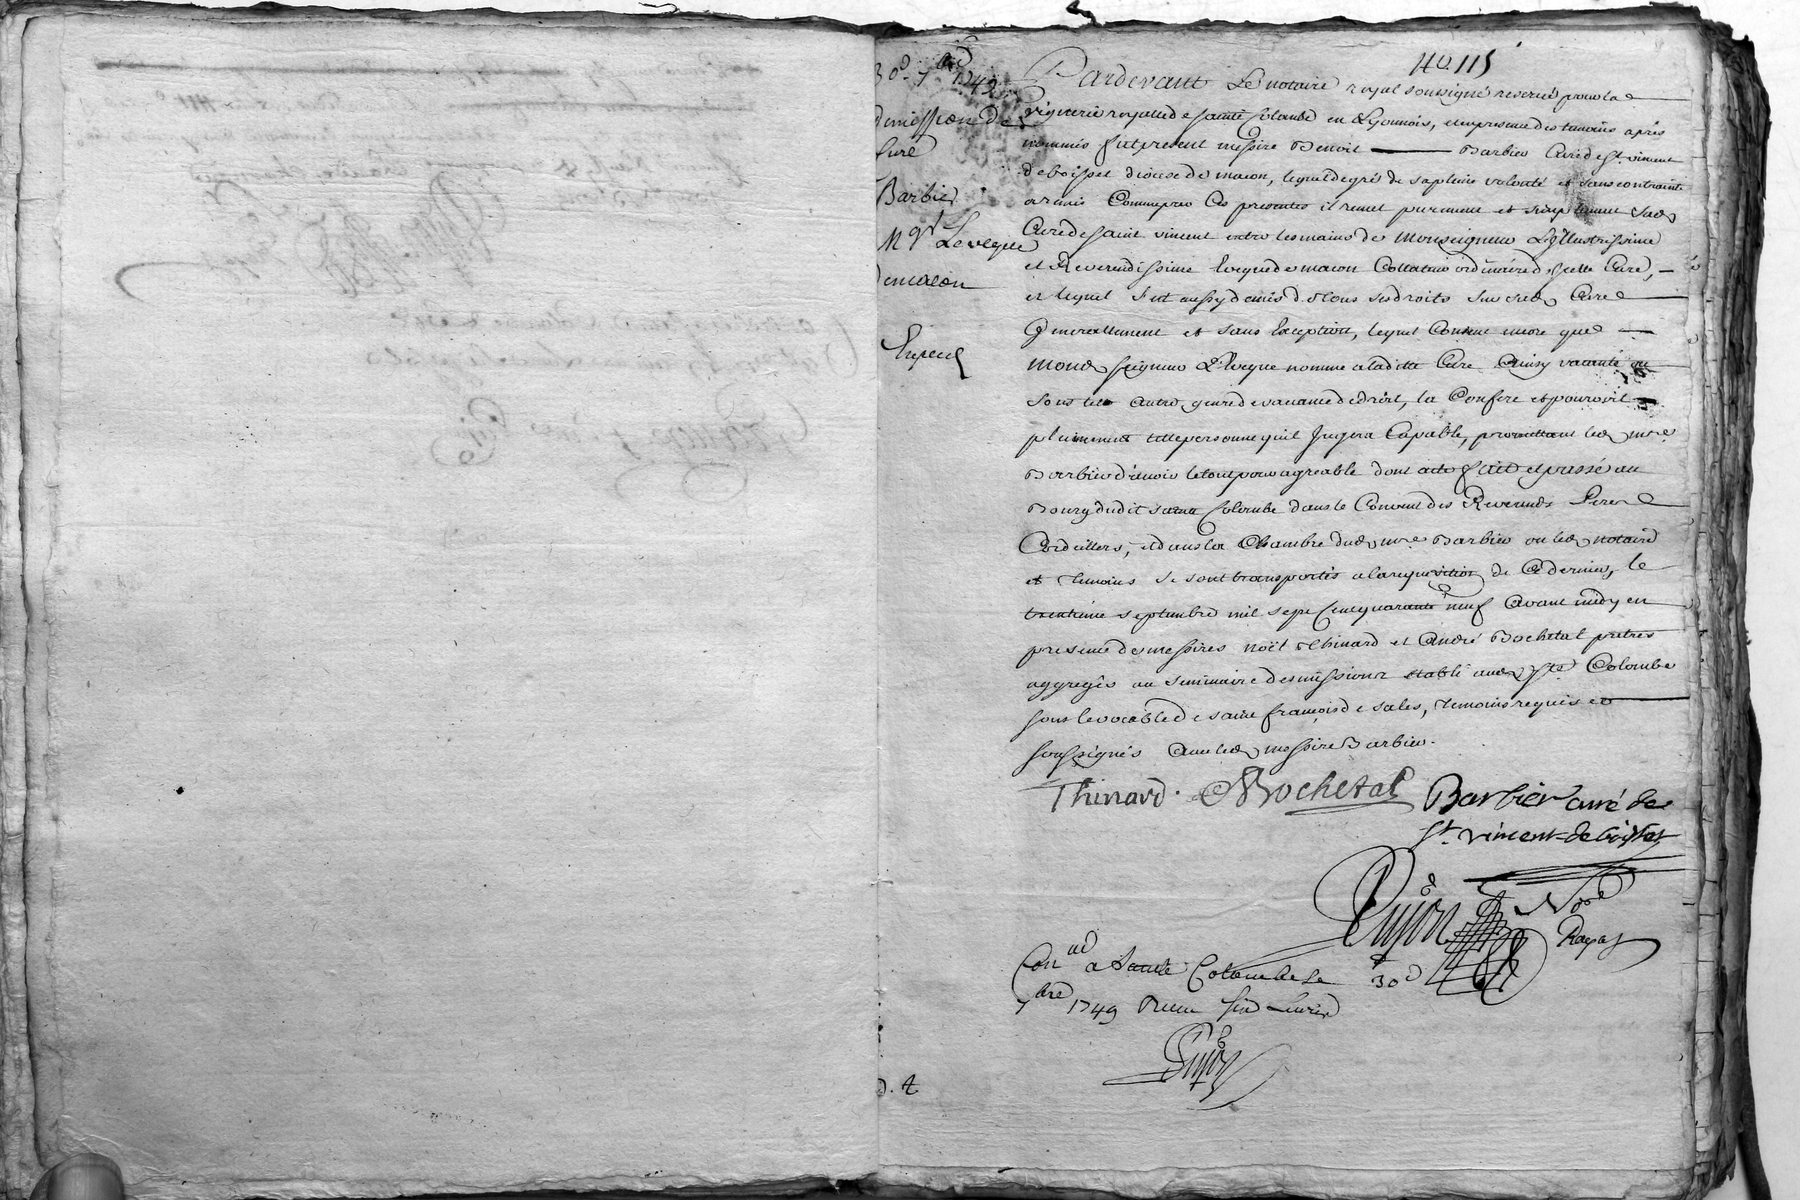 115
30e 7bre 1749
demission de
Cure
Barbier
Mgr Leveque
de macon
Expedié
Pardevant Le notaire royal soussigné reservé pour la
viguerie royalle de sainte Colombe en Lyonnois, et en presence des temoins après
nommés fut present messire Benoit Barbier Curé de st. vincent
de boisset diocese de macon, lequel de gré de sa pleine volonté et sans contrainte
a remis Comme par Ces presentes il remet purement et simplement sad.
Cure de saint vincent entre les mains de Monseigneur L'Illustrissime
et Reverendissime Eveque de macon Collateur ordinaire d'icelle Cure,
et lequel s'est aussy demis de tous ses droits sur sad. Cure
Generallement et sans Exception, lequel Consent encore que
mond. seigneur L'Eveque nomme a ladite Cure Ainsy vacante ou
sous tel Autre genre de vacance de droit, la Confere et pourvoit
plainement telle personne qu'il Jugera Capable, promettant led. mre.
Barbier d'avoir le tout pour agreable dont acte fait et passé au
Bourg dudit sainte Colombe dans le Convent des Reverends Peres
Cordelliers, et dans la Chambre dud. mre. Barbier ou led. notaire
et temoins se sont transportés a la requisition de Ce dernier, le
trentieme septembre mil sept Cent quarante neuf Avant midy en
presence de messires noël Thinard et André Bochetal pretres
aggregés au seminaire des missions etabli aud. ste. Colombe
sous le vocable de saint françois de sales, temoins requis et
soussignés Avec led. messire Barbier.
Thinard. Bochetal Barbier curé de
st. vincent de boisset
Pujon Nore
Royal
Conlé a Sainte Colombe le 30e
7bre 1749 Receu six Livres
Pujon